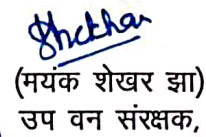 Shekhar
(मयंक शेखर झा)
उप वन संरक्षक,